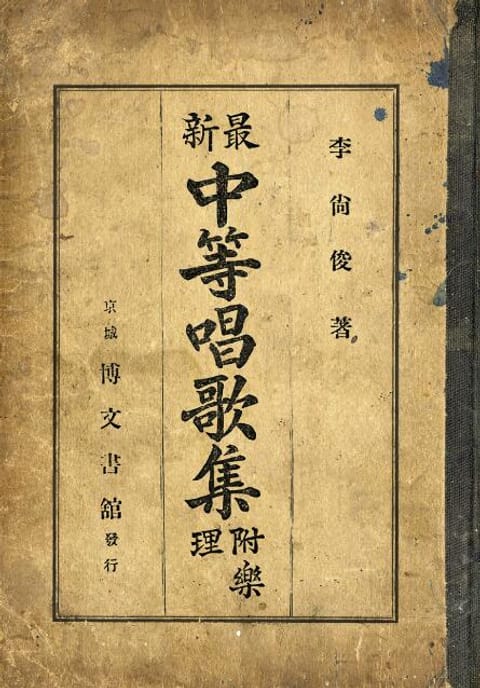 李尙俊著
最新
中等唱歌集
附樂理
京城 博文書舘 發行